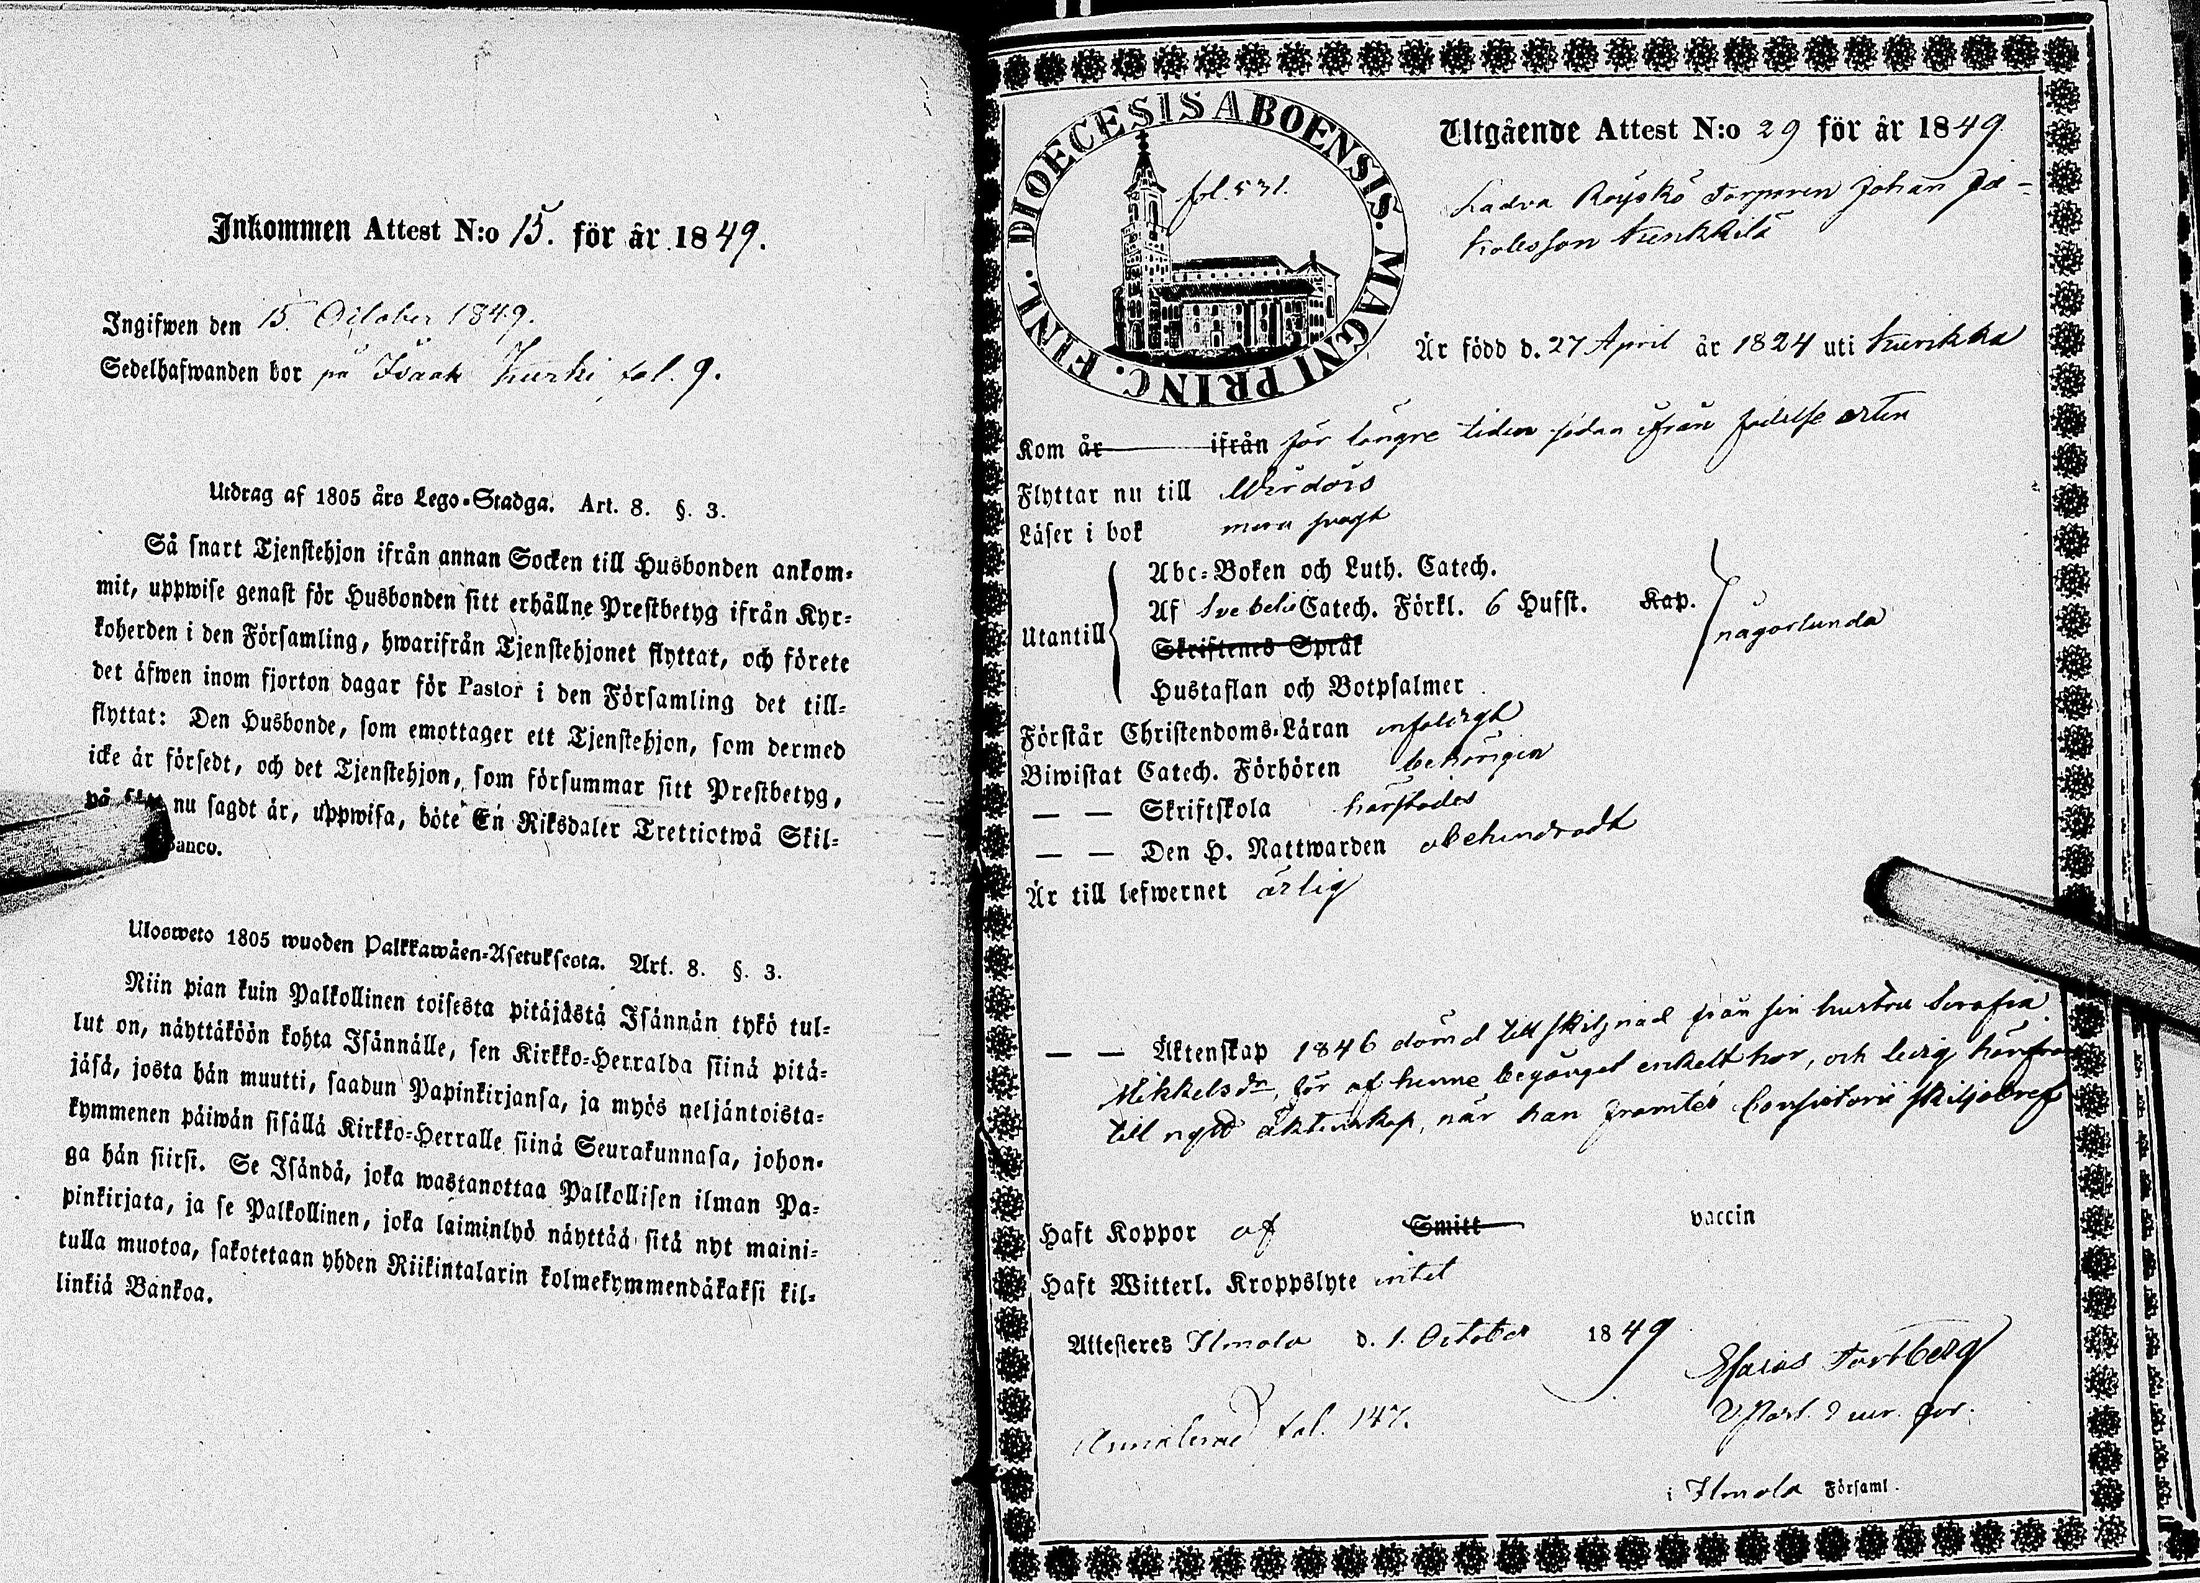 Inkommen Attest N:o 15. för år 1849.
Ingifwen den 15. October 1849.
Sedelhafwanden bor på Isaak Kurki, fol. 9.
Utdrag af 1805 års Lego-Stadga. Art. 8. §. 3.
Så snart Tjenstehjon ifrån annan Socken till Husbonden ankom-
mit, uppwise genast för Husbonden sitt erhållne Prestbetyg ifrån Kyr-
koherden i den Församling, hwarifrån Tjenstehjonet flyttat, och förete
det äfwen inom fjorton dagar för Pastor i den Församling det till-
flyttat: Den Husbonde, som emottager ett Tjenstehjon, som dermed
icke är försedt, och det Tjenstehjon, som försummar sitt Prestbetyg,
på sätt nu sagdt är, uppwisa, böte En Riksdaler Trettiotwå Skil-
Banco.
Ulosweto 1805 wuoden Palkkawäen-Asetuksesta. Art. 8. §. 3.
Niin pian kuin Palkollinen toisesta pitäjästä Isännän tykö tul-
lut on, näyttäköön kohta Isännälle, sen Kirkko-Herralda siinä pitä-
jäsä, josta hän muutti, saadun Papinkirjansa, ja myös neljäntoista-
kymmenen päiwän sisällä Kirkko-Herralle siinä Seurakunnasa, johon-
ga hän siirsi. Se Isändä, joka wastanottaa Palkollisen ilman Pa-
pinkirjata, ja se Palkollinen, joka laiminlyö näyttää sitä nyt maini-
tulla muotoa, sakotetaan yhden Riikintalarin kolmekymmendäkaksi kil-
linkiä Bankoa.
DIOECESIS ABOENSIS. MAGNI PRINC. FINL.
fol. 531.
Utgående Attest N:o 29 för år 1849
Ladva Röyskö Torparen Johan Ja-
kobsson Kurikkila
Är född d. 27 April år 1824 uti Kurikka
Kom år ifrån för längre tiden sedan ifrån födelse orten
Flyttar nu till Wirdois
Läser i bok mera svagt
Utantill
Abc-Boken och Luth. Catech.
Af Svebelii Catech. Förkl. 6 Hufst. Kap.
någorlunda
Skriftenes Språk
Hustaflan och Botpsalmer
Förstår Christendoms-Läran enfaldigt
Biwistat Catech. Förhören behörigen
— — Skriftskola härstädes
— — Den H. Nattwarden obehindradt
Är till lefwernet ärlig
— — Äktenskap 1846 dömd till skilgnad från sin hustru Serafia
Mikkelsdr, för af henne begånget enkelt hor, och ledig härifrån
till nytt äktenskap, när han framter Consistorii skiljobref
Haft Koppor af Smitt vaccin
Haft Witterl. Kroppslyte intet
Attesteres Ilmola d. 1. October 1849
Esaias Fortberg
V. Past.
fol. 147.
i Ilmola Församl.